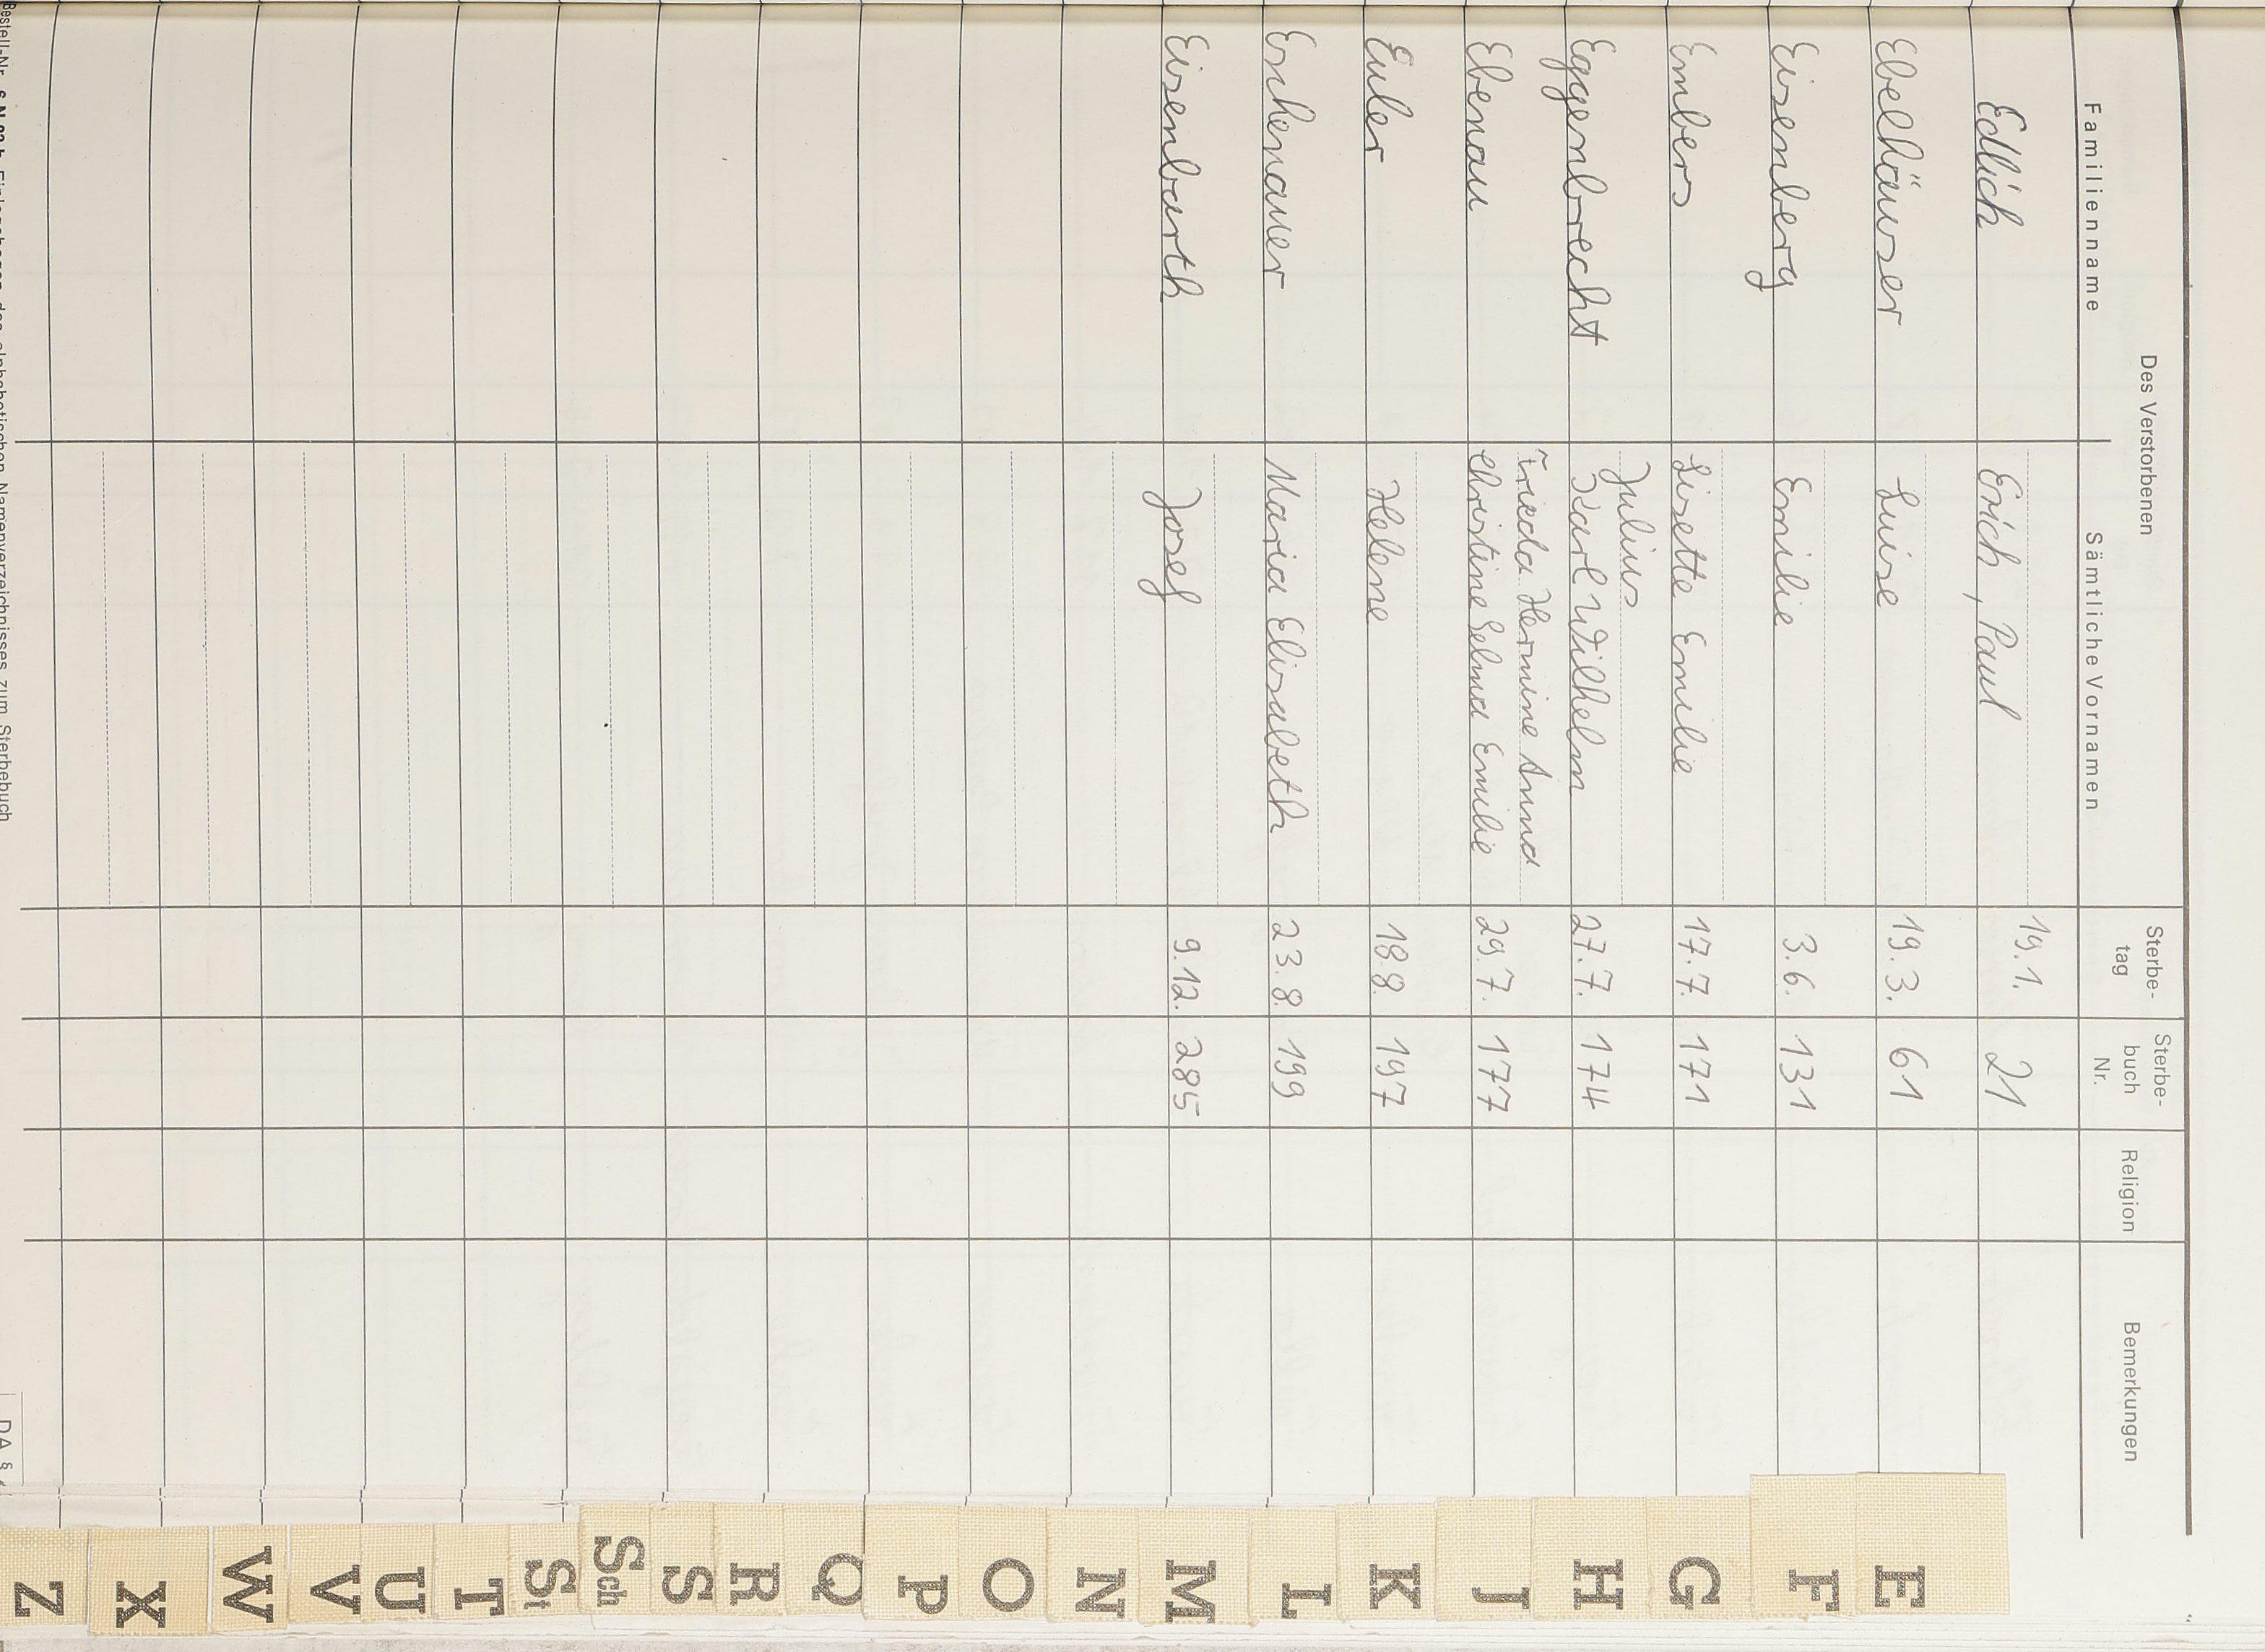 Des Verstorbenen
Familienname
Sämtliche Vornamen
Sterbe-
tag
Sterbe-
buch
Nr.
Religion
Bemerkungen
Edlich Erich, Paul 19.1. 21
Ebelhäuser Luise 19.3. 61
Eisenberg Emilie 3.6. 131
Embers Lisette Emilie 17.7. 171
Julius
Eggenbrecht Karl Wilhelm 27.7. 174
Frieda Hermine Anna
Ebenau Christine Selma Emilie 29.7. 177
Euler Helene 18.8. 197
Eschenauer Maria Elisabeth 23.8. 199
Eisenbarth Josef 9.12. 285
Bestell-Nr. Einlagebogen des alphabetischen Namenverzeichnisses zum Sterbebuch
DA §
E
F
G
H
J
K
L
M
N
O
P
Q
R
S
Sch
St
T
U
V
W
X
Z